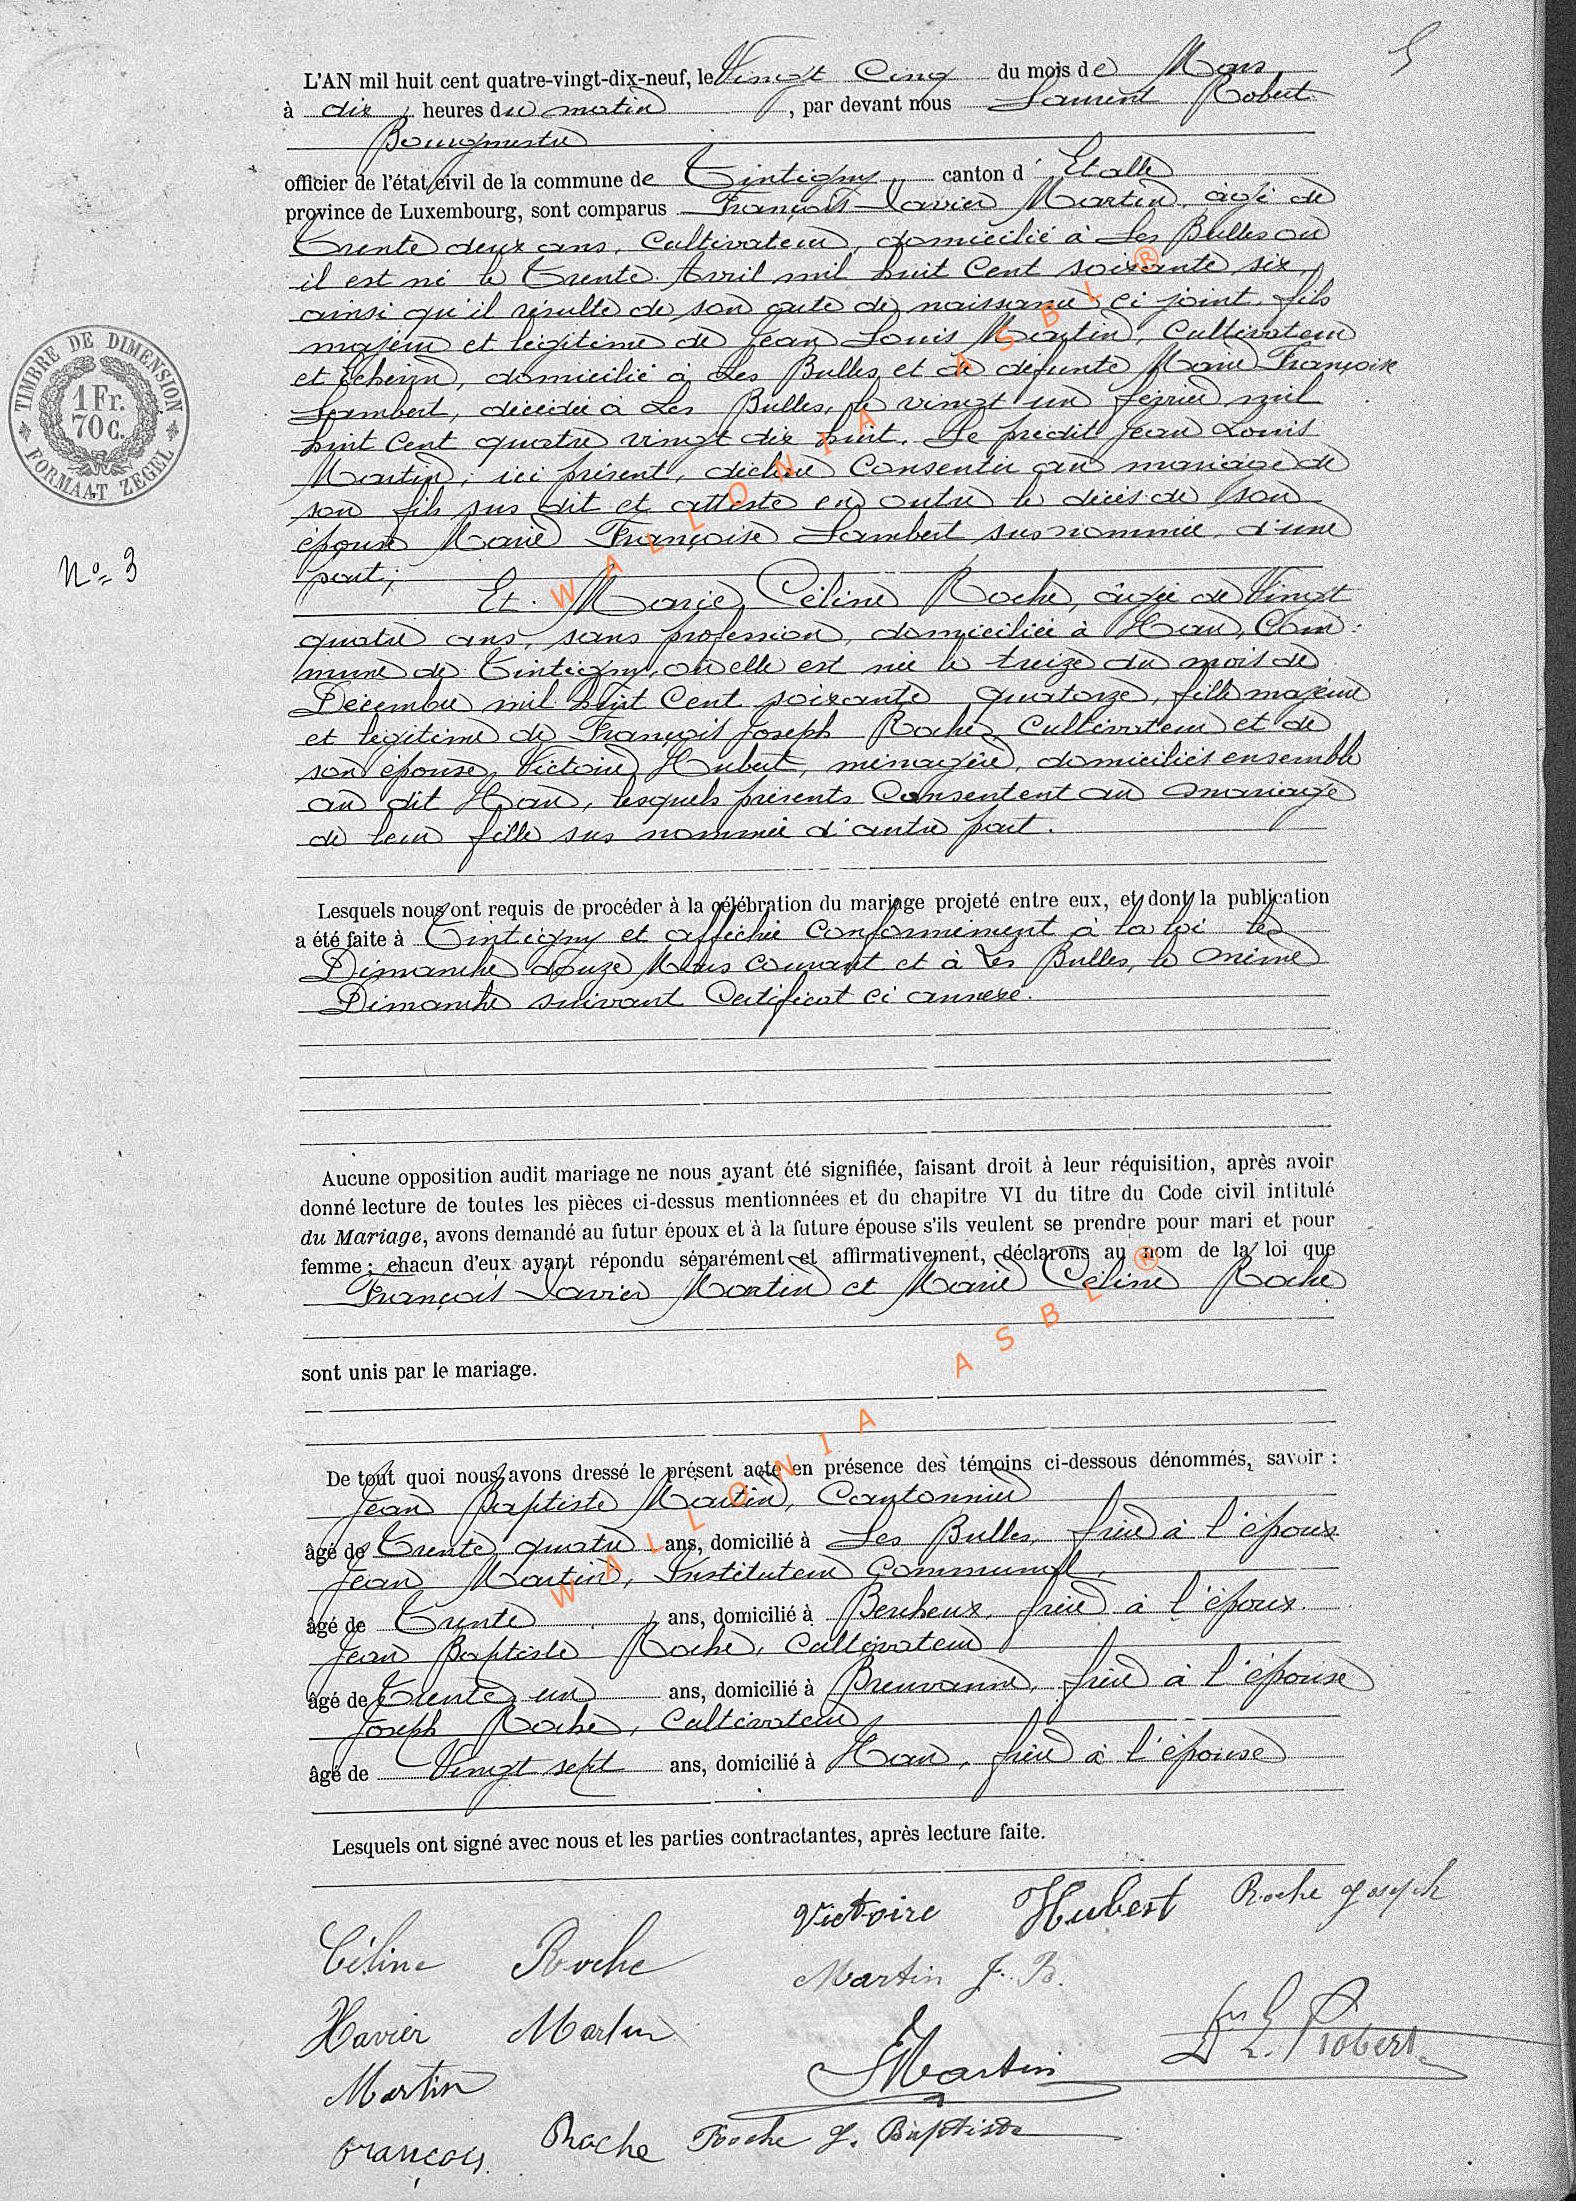 5
L'AN mil huit cent quatre-vingt-dix-neuf, le Vingt Cinq du mois de Mars
à dix heures du matin, par devant nous Laurent Robert
Bourgmestre
officier de l'état civil de la commune de Tintigny canton d'Etalle
province de Luxembourg, sont comparus François Xavier Martin, âgé de
Trente deux ans, Cultivateur, domicilié à Les Bulles où
il est né le Trente Avril mil huit Cent soixante six,
ainsi qu'il résulte de son acte de naissance ci joint, fils
majeur et légitime de Jean Louis Martin, Cultivateur
et Echevin, domicilié à Les Bulles et de défunte Marie Françoise
Lambert, décédée à Les Bulles, le vingt un février mil
huit Cent quatre vingt dix huit. Le prédit Jean Louis
Martin, ici présent, déclare Consentir au mariage de
son fils sus dit et atteste en outre le décès de son
épouse Marie Françoise Lambert sus nommée, d'une
part;
Et Marie Céline Roche, âgée de Vingt
quatre ans, sans profession, domiciliée à Han, Com:
mune de Tintigny, où elle est née le treize du mois de
Décembre mil huit Cent soixante quatorze, fille majeure
et légitime de François Joseph Roche, Cultivateur et de
son épouse Victoire Hubert, ménagère, domiciliés ensemble
au dit Han, lesquels présents Consentent au mariage
de leur fille sus nommée d'autre part.
Lesquels nous ont requis de procéder à la célébration du mariage projeté entre eux, et dont la publication
a été faite à Tintigny et affichée Conformément à la loi le
Dimanche douze Mars courant et à Les Bulles, le même
Dimanche suivant Certificat ci annexé.
Aucune opposition audit mariage ne nous ayant été signifiée, faisant droit à leur réquisition, après avoir
donné lecture de toutes les pièces ci-dessus mentionnées et du chapitre VI du titre du Code civil intitulé
du Mariage, avons demandé au futur époux et à la future épouse s'ils veulent se prendre pour mari et pour
femme; chacun d'eux ayant répondu séparément et affirmativement, déclarons au nom de la loi que
François Xavier Martin et Marie Céline Roche
sont unis par le mariage.
De tout quoi nous avons dressé le présent acte en présence des témoins ci-dessous dénommés, savoir :
Jean Baptiste Martin, Cantonnier
âgé de Trente quatre ans, domicilié à Les Bulles, frère à l'époux
Jean Martin, Instituteur Communal,
âgé de Trente ans, domicilié à Bercheux, frère à l'époux.
Jean Baptiste Roche, Cultivateur
âgé de Trente un ans, domicilié à Breuvanne, frère à l'épouse
Joseph Roche, Cultivateur
âgé de Vingt sept ans, domicilié à Han, frère à l'épouse
Lesquels ont signé avec nous et les parties contractantes, après lecture faite.
Victoire Hubert Roche Joseph
Céline Roche
Martin J. B.
Xavier Martin
L. Robert
Martin
JMartin
François Roche Roche J. Baptiste
TIMBRE DE DIMENSION
1 Fr.
70 C.
FORMAAT ZEGEL
N° 3
WALLONIA ASBL ®
WALLONIA ASBL ®